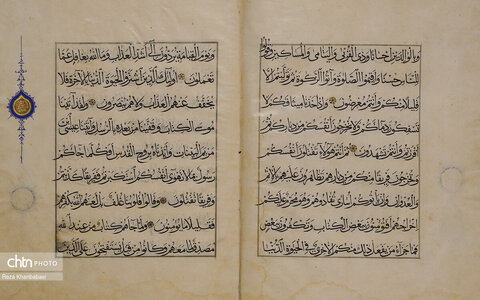 وبالوالدين احسانا وذى القربى واليتامى والمساكين وقولوا
للناس حسنا واقيموا الصلوة واتوا الزكوة ثم توليتم الا
قليلا منكم وانتم معرضون واذ اخذنا ميثاقكم لا
تسفكون دماءكم ولا تخرجون انفسكم من دياركم ثم
اقررتم وانتم تشهدون ثم انتم هؤلاء تقتلون انفسكم
وتخرجون فريقا منكم من ديارهم تظاهرون عليهم بالاثم
والعدوان وان ياتوكم اسارى تفادوهم وهو محرم عليكم
اخراجهم افتؤمنون ببعض الكتاب وتكفرون ببعض
فما جزاء من يفعل ذلك منكم الا خزى فى الحيوة الدنيا
ويوم القيامة يردون الى اشد العذاب وما الله بغافل عما
تعملون اولئك الذين اشتروا الحيوة الدنيا بالاخرة فلا
يخفف عنهم العذاب ولا هم ينصرون ولقد اتينا
موسى الكتاب وقفينا من بعده بالرسل واتينا عيسى ابن
مريم البينات وايدناه بروح القدس افكلما جاءكم
رسول بما لا تهوى انفسكم استكبرتم ففريقا كذبتم
وفريقا تقتلون وقالوا قلوبنا غلف بل لعنهم الله بكفرهم
فقليلا ما يؤمنون ولما جاءهم كتاب من عند الله
مصدق لما معهم وكانوا من قبل يستفتحون على الذين
chtn PHOTO
Reza Khanbabaei